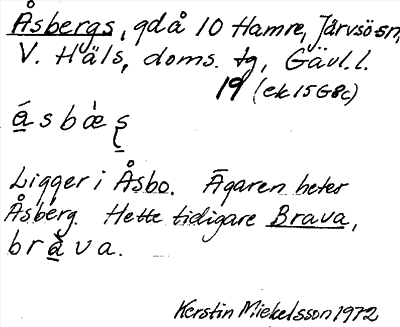 Åsbergs, gdå 10 Hamre, Järvsö sn,
V. Häls, doms. tg, Gävl. l.
19 (ek 15G8c)
á s b œ̀ ʂ
Ligger i Åsbo. Ägaren heter
Åsberg. Hette tidigare Brava,
b r à v a.
Kerstin Mickelsson 1972